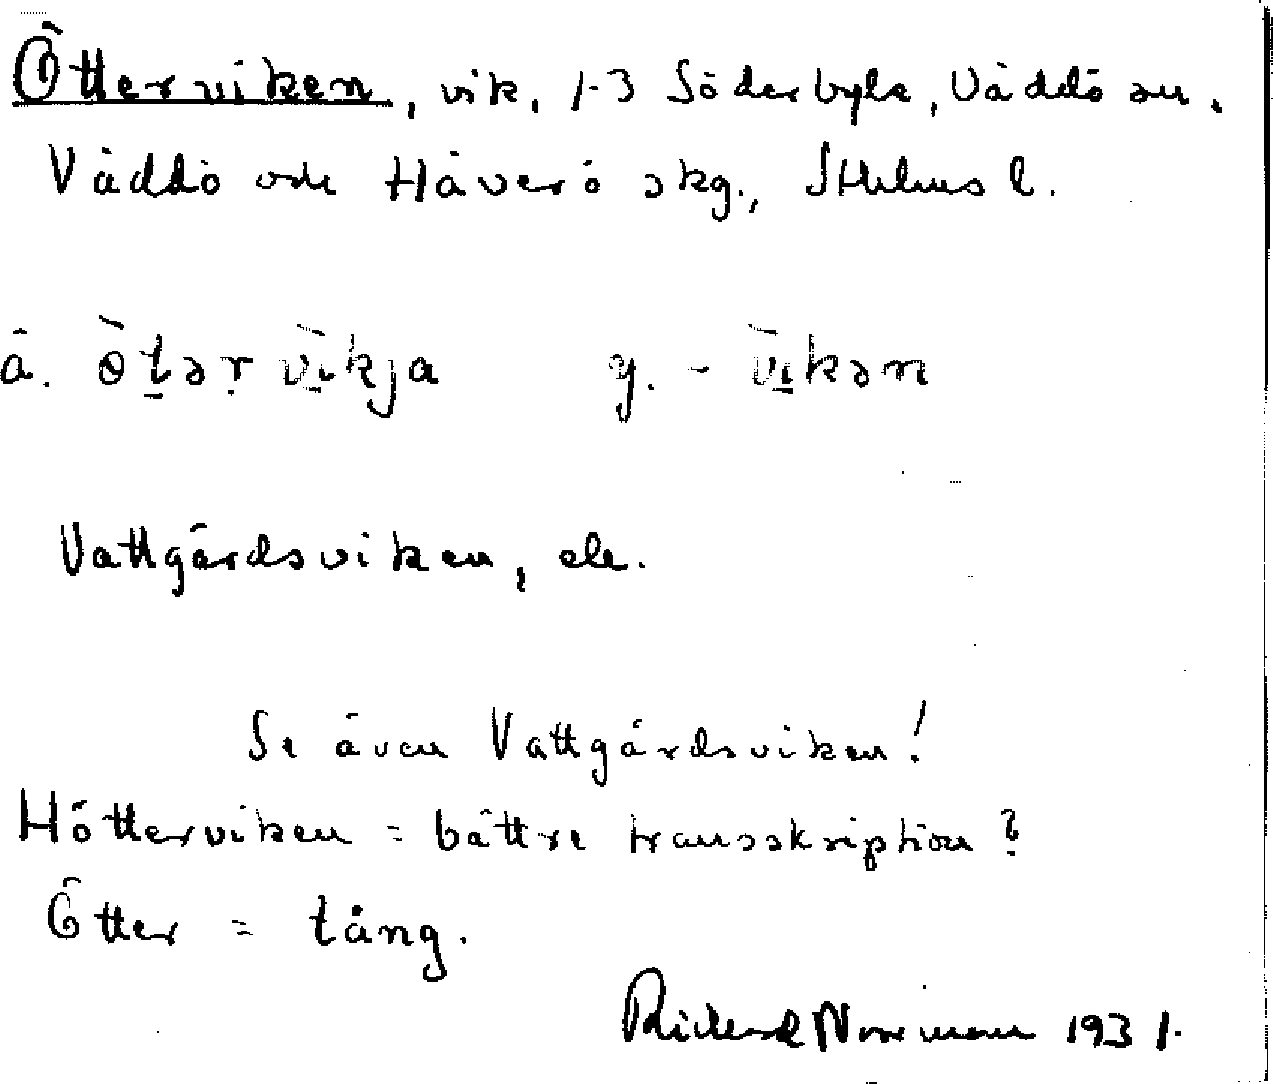 Ötterviken, vik, 1-3 Söderbyle, Väddö sn.
Väddö och Häverö skg., Sthlms l.
ä. ötər vikja y. - vikən
Vattgårdsviken, ek.
Se även Vattgårdsviken!
Hötterviken = bättre transskription?
Ötter = tång.
Rickard Norrman 1931.